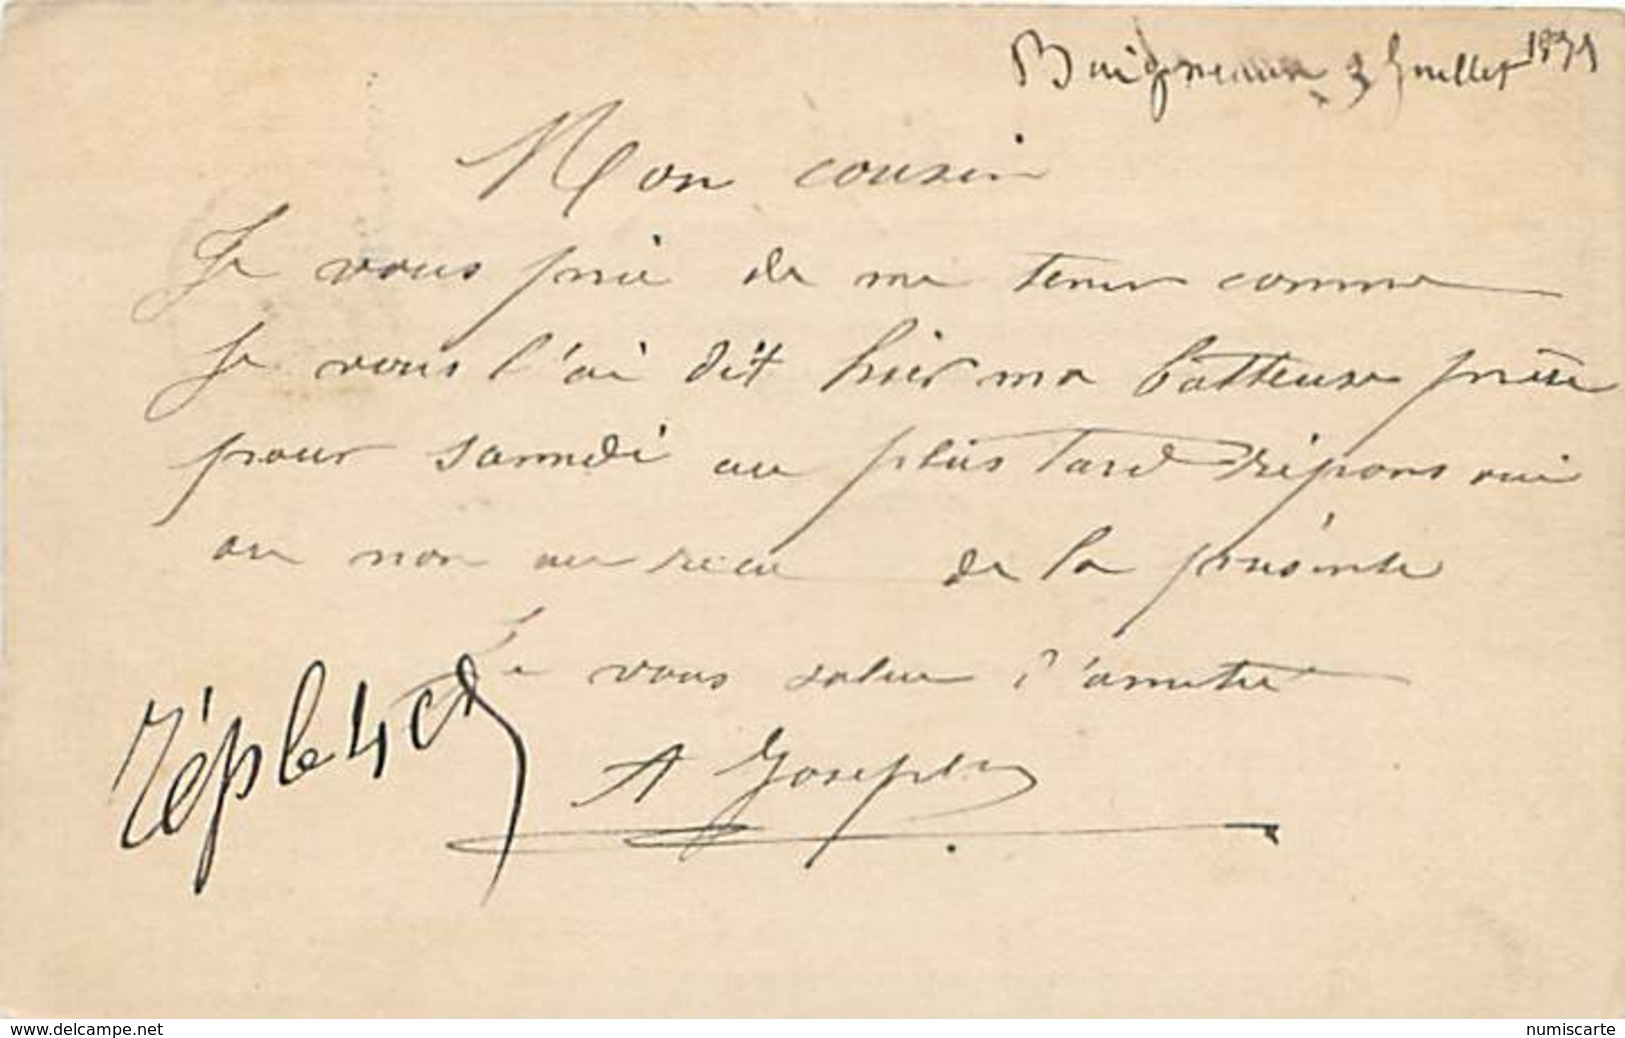 3 Juillet
Mon cousin
Je vous prie de me tenir comme
Je vous l'ai dit hier ma batteuse prête
pour samedi au plus tard répons oui
ou non au recu de la présente
Je vous salue d'amitié
A Joseph
rép le 4 ct
www.delcampe.net
numiscarte